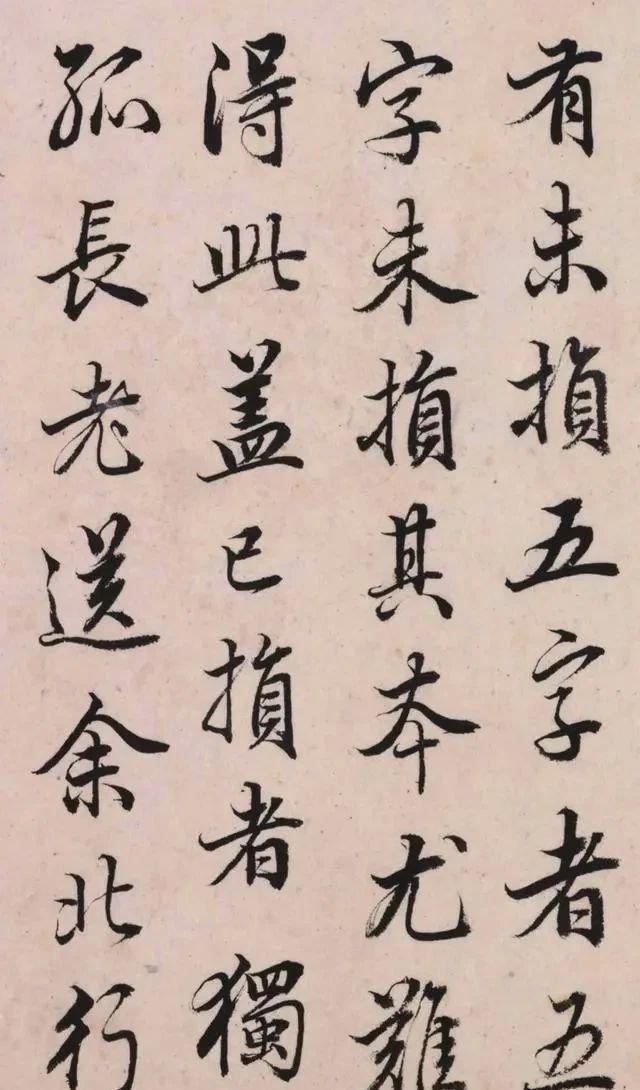 有未損五字者五
字未損其本尤難
得此蓋已損者獨
孤長老送余北行